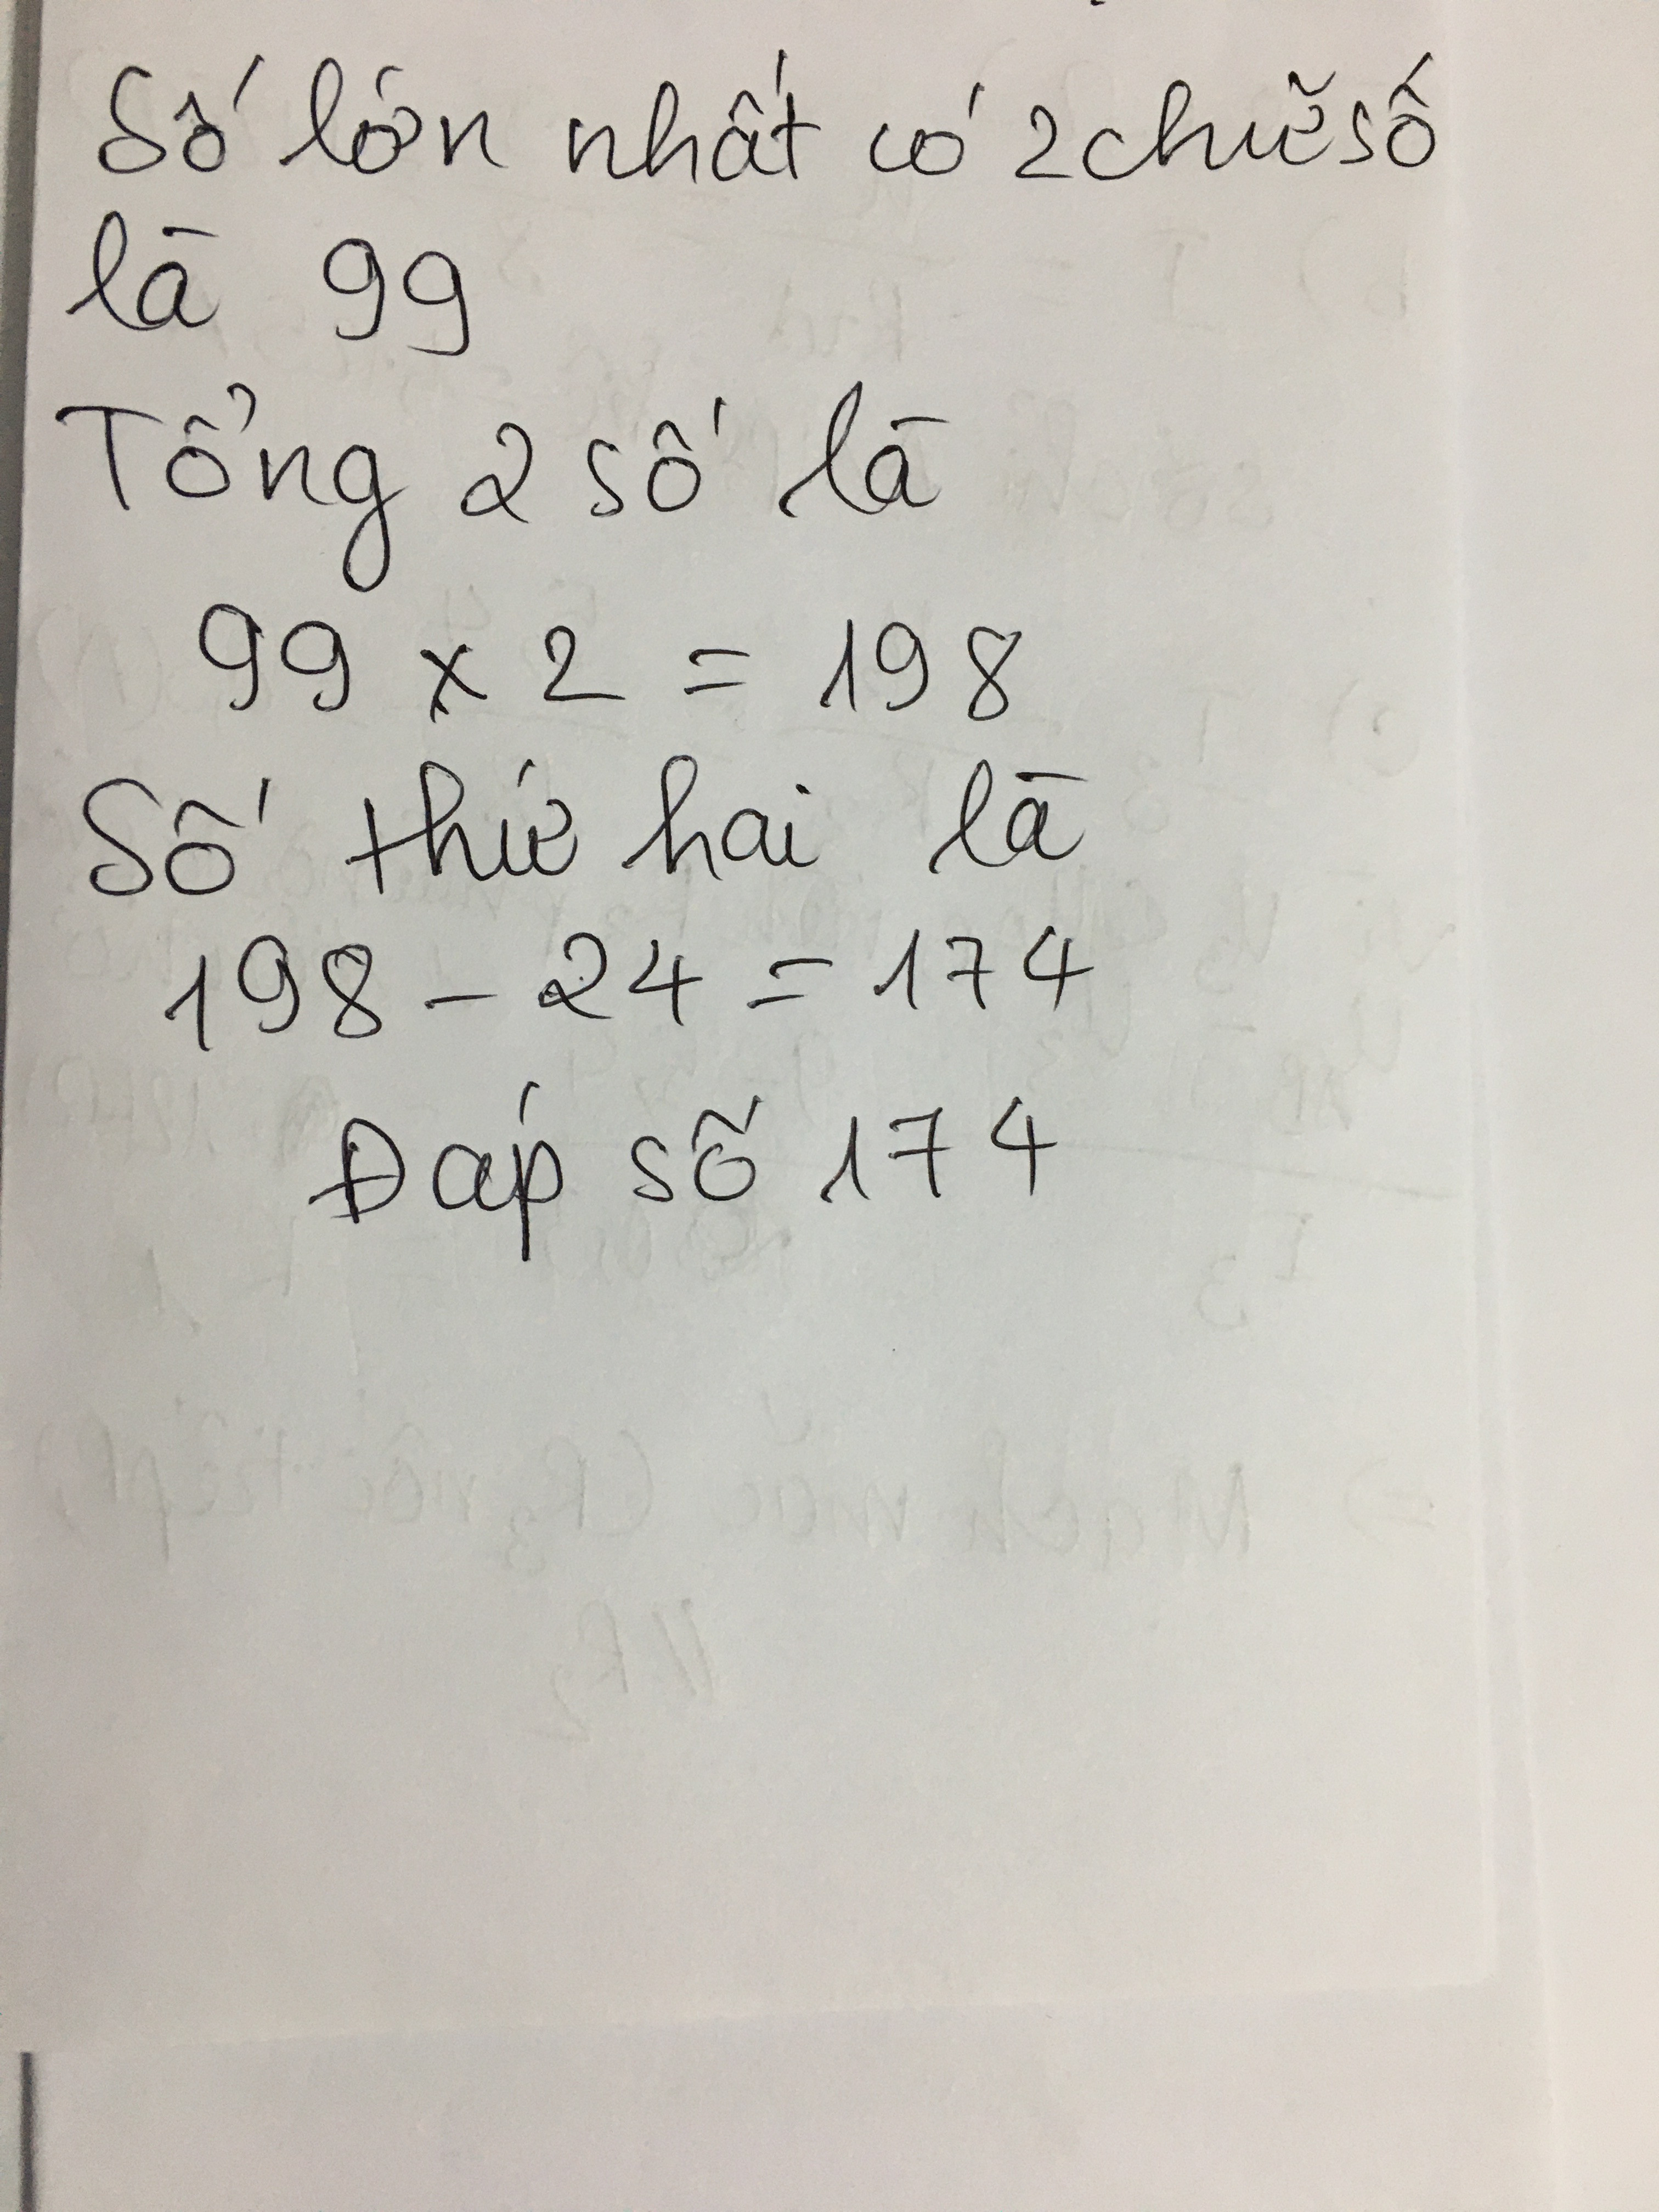 Số lớn nhất có 2 chữ số
là 99
Tổng 2 số là
99 x 2 = 198
Số thứ hai là
198 - 24 = 174
Đáp số 174